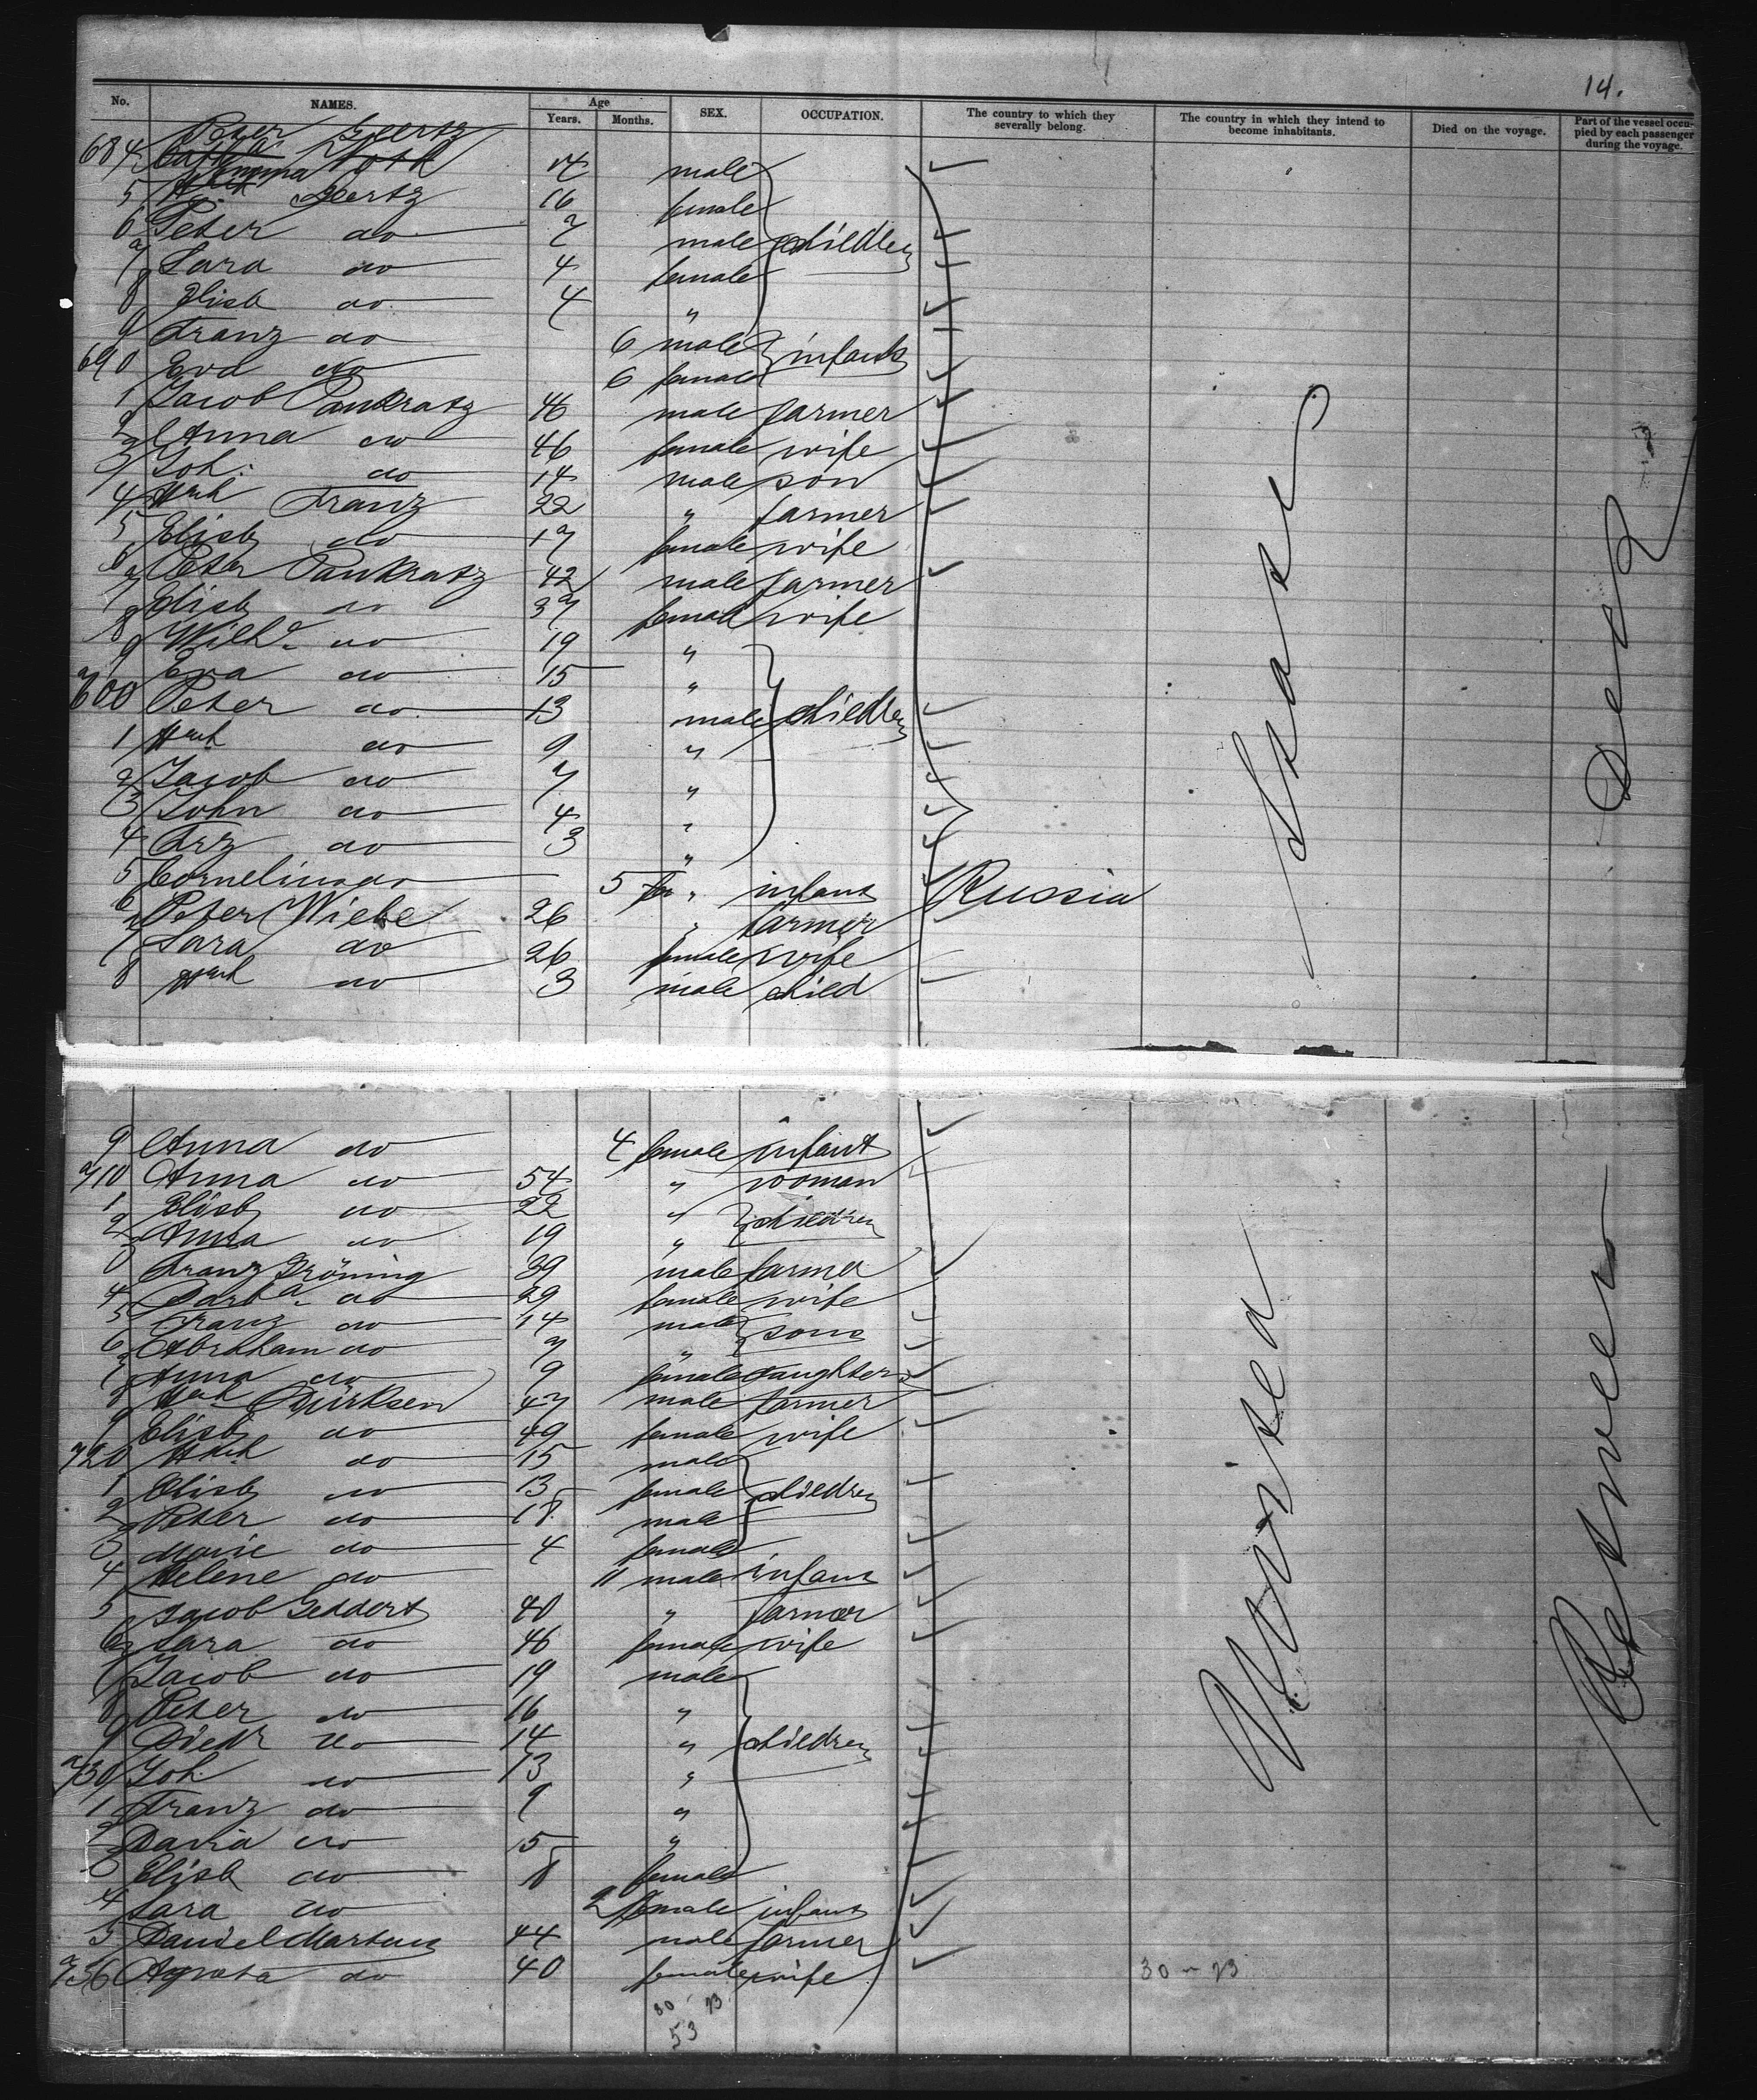 14.
No. NAMES. Age Years. Months. SEX. OCCUPATION. The country to which they severally belong. The country in which they intend to become inhabitants. Died on the voyage. Part of the vessel occupied by each passenger during the voyage.
Peter Geertz
684 male
5 Geertz 16 female
6 Peter do 7 male children
7 Sara do 4 female
8 Elisb do 4 "
9 Franz do 6 male infants
690 Eva do 6 female
1 Jacob Pankratz 46 male farmer
2 Anna do 46 female wife
3 Joh. do 14 male son
4 Hch Franz 22 " farmer
5 Elisb do 17 female wife
6 Peter Pankratz 42 male farmer
7 Elisb do 37 female wife
8 Wilhe do 19 "
9 Eva do 15 "
700 Peter do 13 male children
1 Hch do 9 "
2 Jacob do 7 "
3 John do 4 "
4 Frz do 3 "
5 Cornelius do 5 " infant Russia
6 Peter Wiebe 26 " farmer
7 Sara do 26 female wife
8 Hch do 3 male child
9 Anna do 4 female infant
710 Anna do 54 " woman
1 Elisb do 22 " children
2 Anna do 19 "
3 Franz Gröning 39 male farmer
4 Barba do 29 female wife
5 Franz do 14 male sons
6 Abraham do 7 "
7 Anna do 9 female daughter
8 Hch Dürksen 47 male farmer
9 Elisb do 49 female wife
720 Hch do 15 male
1 Elisb do 13 female children
2 Peter do 18 male
3 Marie do 4 female
4 Helene do 11 male infant
5 Jacob Geddert 40 " farmer
6 Sara do 46 female wife
7 Jacob do 19 male
8 Peter do 16 "
9 Diedr do 14 " children
730 Joh do 13 "
1 Franz do 9 "
2 David do 15 "
3 Elisb do 8 female
4 Sara do 2 female infant
5 Daniel Martens 44 male farmer
736 Agneta do 40 female wife
30 - 23
30 - 23
53
United States
Between Deck